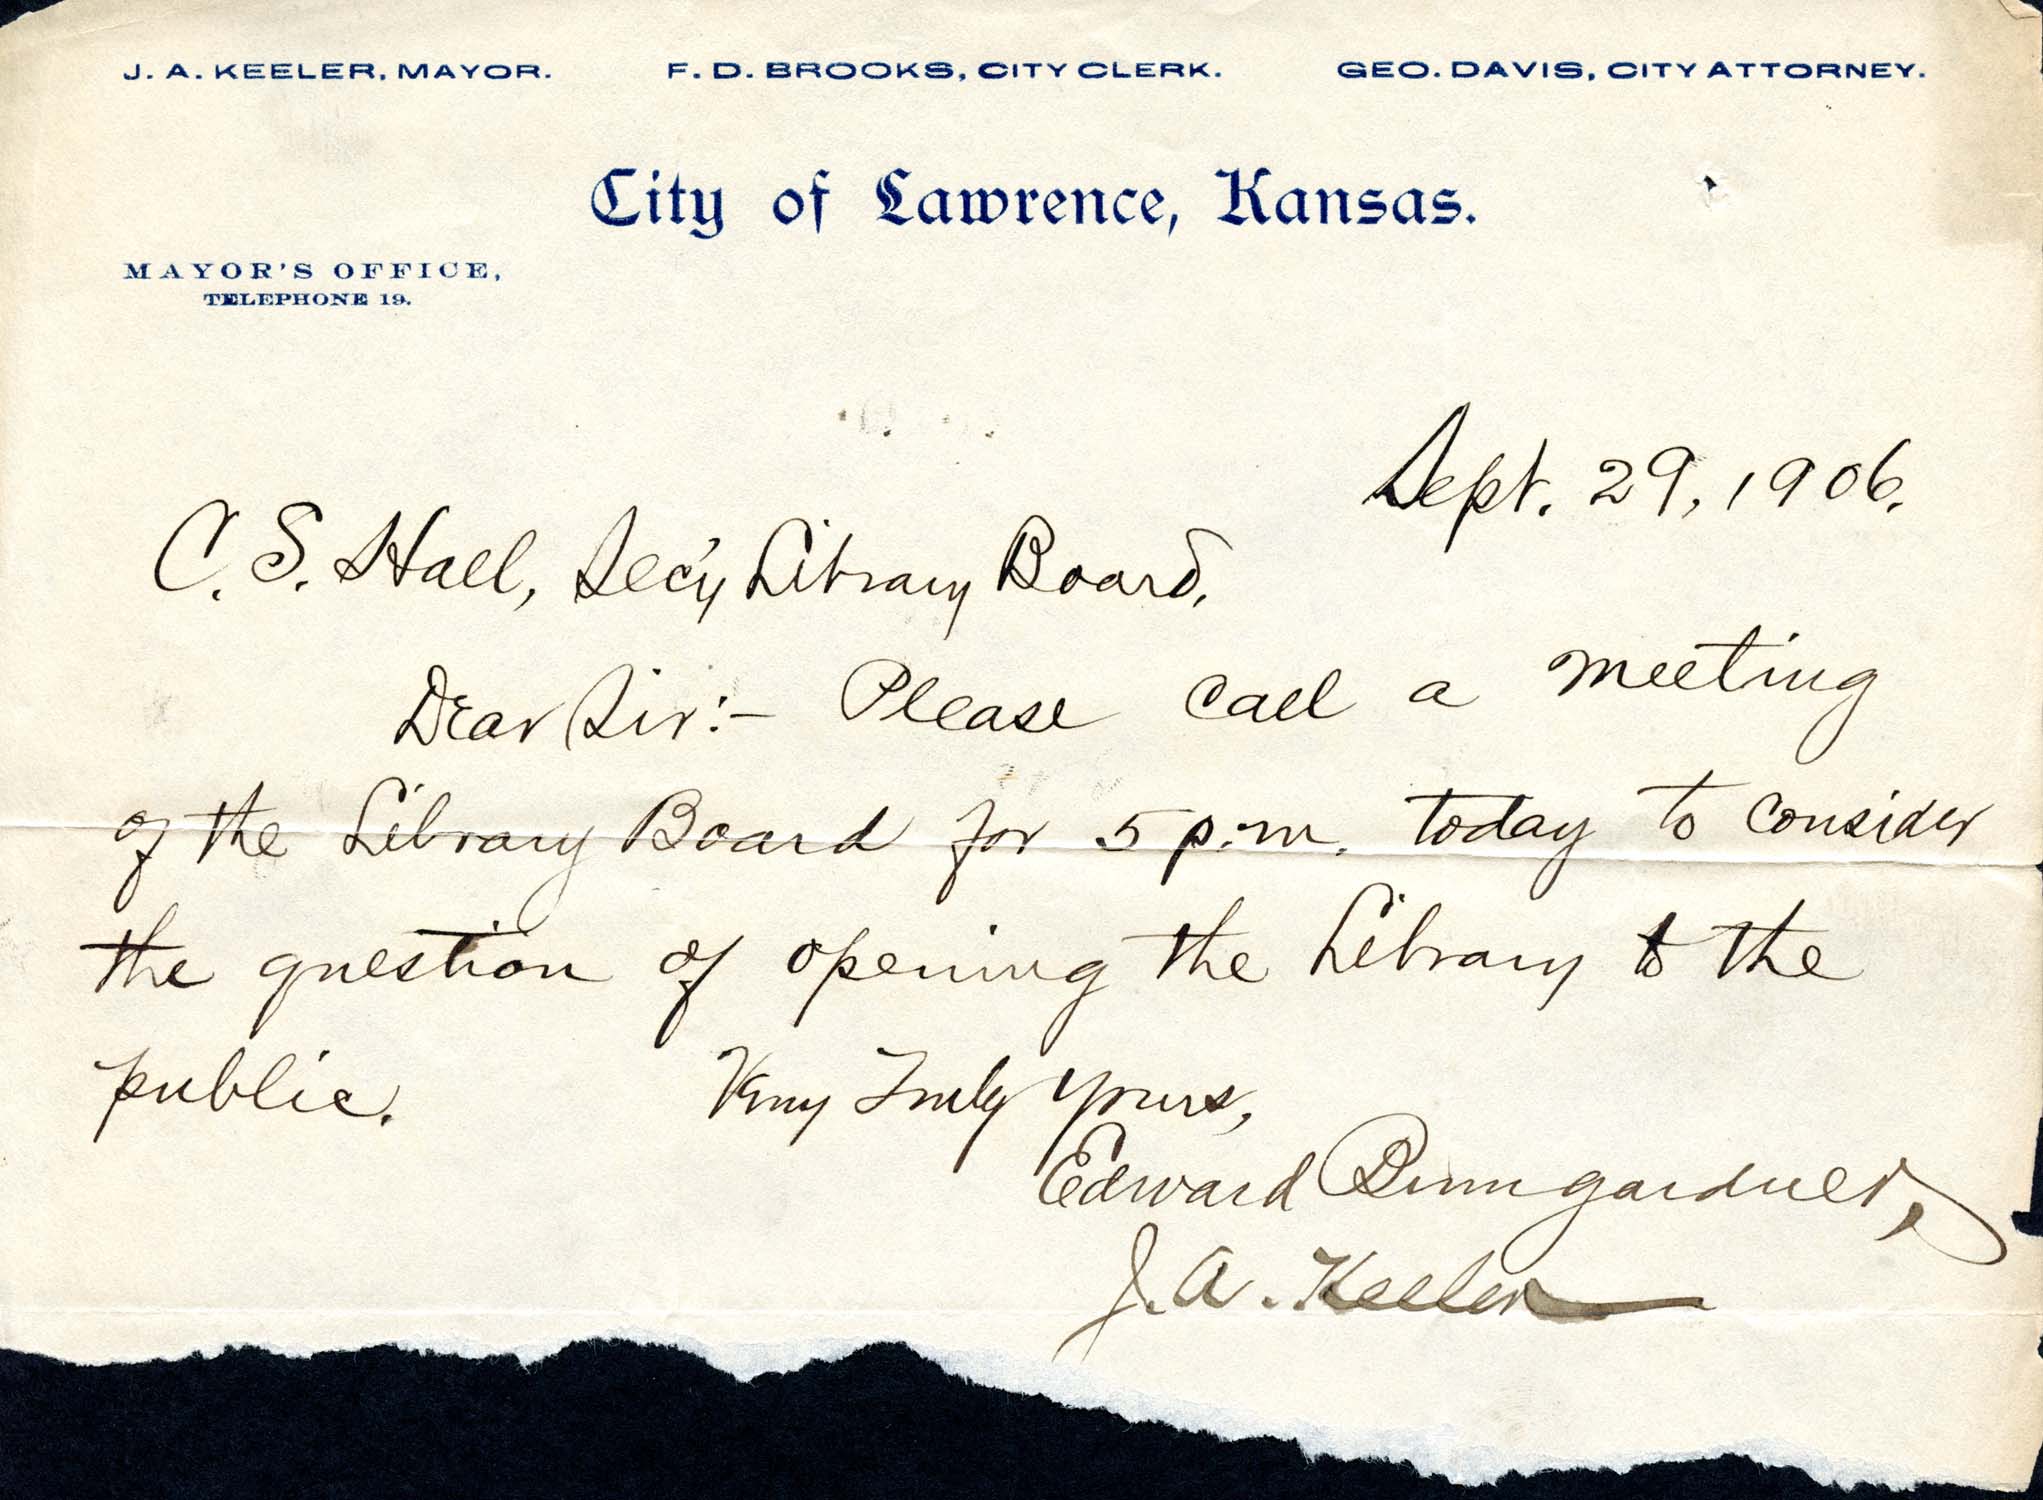 J. A. KEELER, MAYOR. F. D. BROOKS, CITY CLERK. GEO. DAVIS, CITY ATTORNEY.
City of Lawrence, Kansas.
MAYOR'S OFFICE,
TELEPHONE 19.
Sept. 29, 1906.
C. S. Hall, Sec'y Library Board,
Dear Sir:- Please call a meeting
of the Library Board for 5 p.m. today to consider
the question of opening the Library to the
public. Very Truly Yours,
Edward Bumgardner,
J. A. Keeler